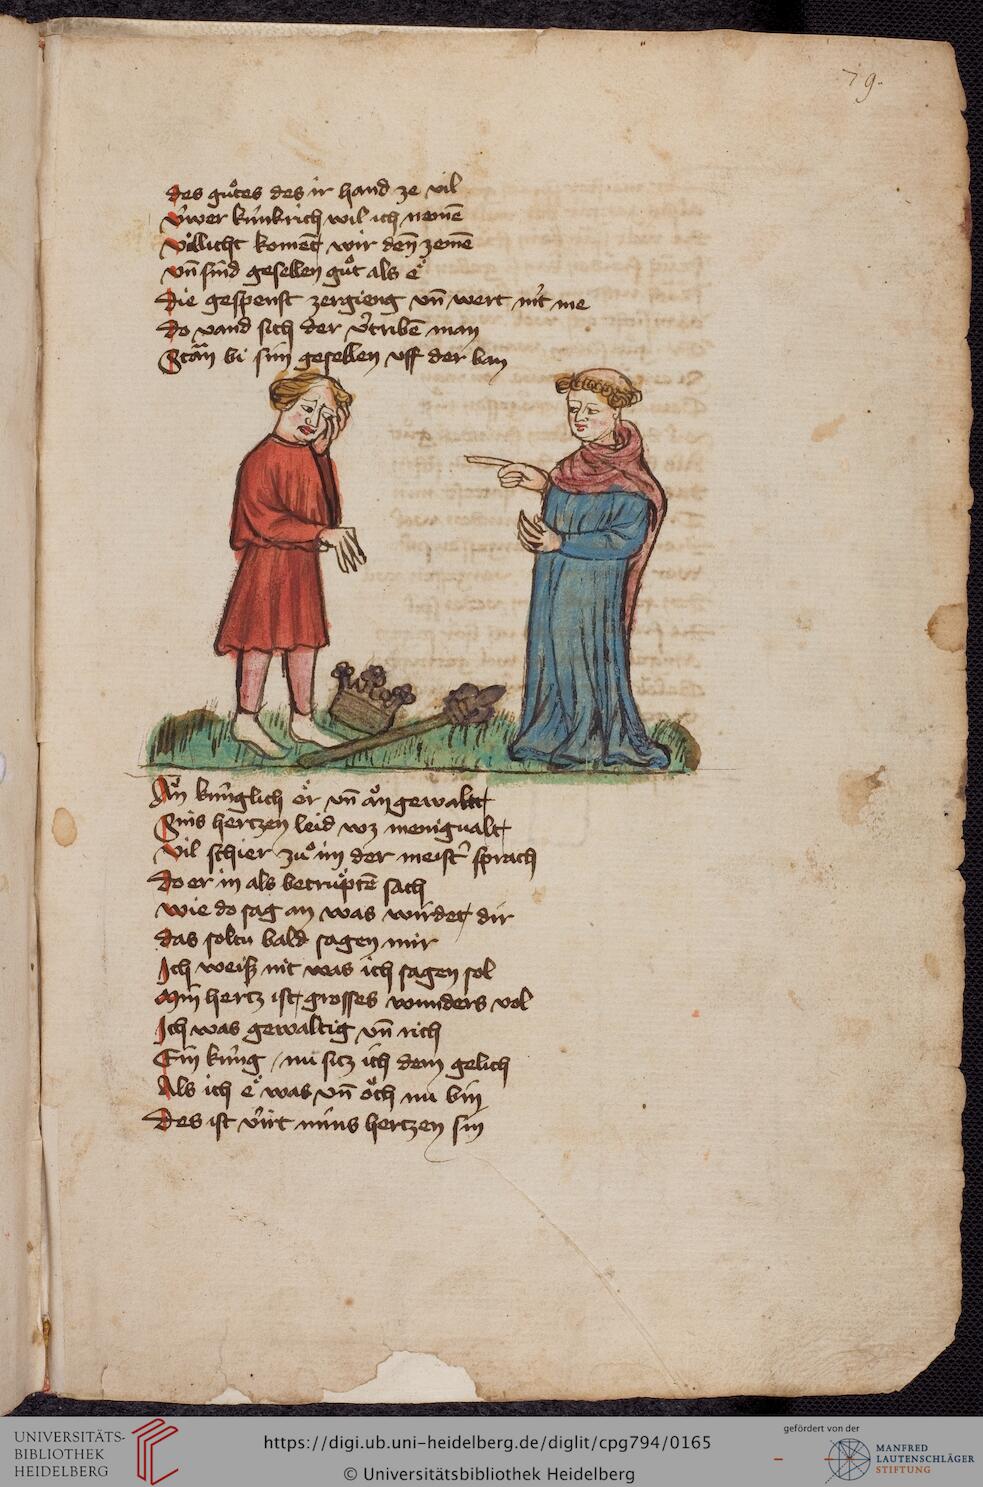 79.
des guͦtes des ir hand ze vil
v̓wer kúnkrich wil ich nemē
villicht komēt wir den̄ zemē
vn̄ sind gesellen guͦt als e
die gespenst zergieng vn̄ wert nit me
do vand sich der v̓tribē man
Stan bi sim gesellen vff der ban
An kúnglich er vn̄ an gewaltt
Sins hertzen leid wz menigualt
vil schier zuͦ im der meist̓ sprach
Do er in als betruͤptē sach
wie do sag an was wirdet dir
das soltu bald sagen mir
Ich weiß nit was ich sagen sol
Min hertz ist grosses wunders vol
Ich was gewaltig vn̄ rich
Ein kúng nu sitz ich dem gelich
Als ich e was vn̄ oͤch nu bin
Des ist v̓irt mins hertzen sin
UNIVERSITÄTS-
BIBLIOTHEK
HEIDELBERG
https://digi.ub.uni-heidelberg.de/diglit/cpg794/0165
© Universitätsbibliothek Heidelberg
gefördert von der
MANFRED
LAUTENSCHLÄGER
STIFTUNG